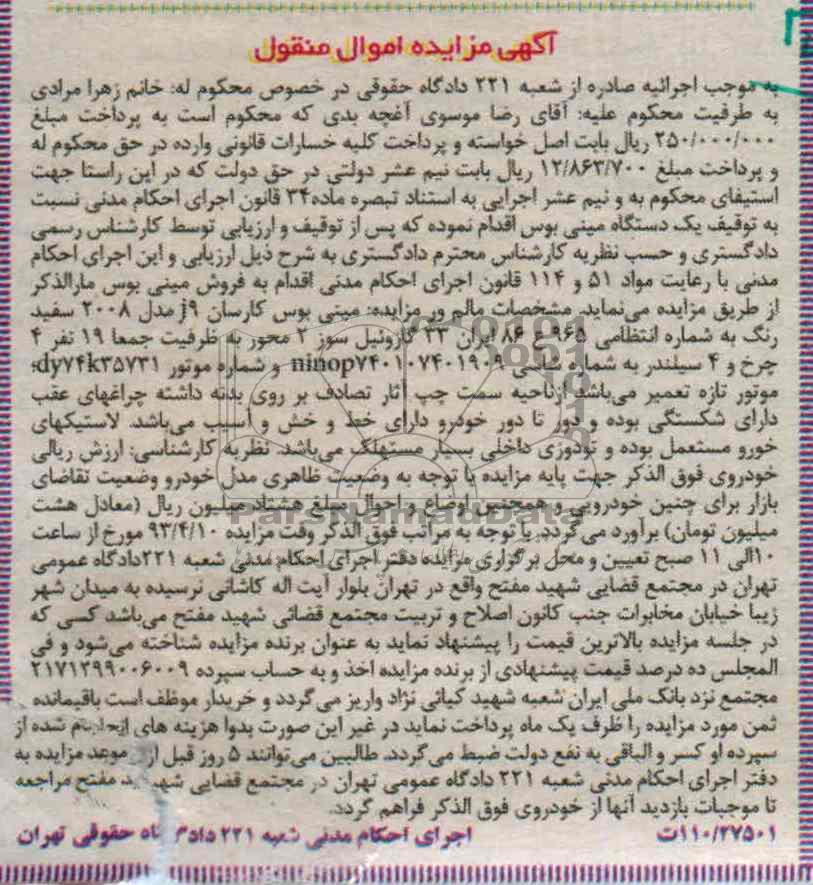 آگهی مزایده اموال منقول
به موجب اجرائیه صادره از شعبه ۲۲۱ دادگاه حقوقی در خصوص محکوم له: خانم زهرا مرادی
به طرفیت محکوم علیه: آقای رضا موسوی آغچه بدی که محکوم است به پرداخت مبلغ
۲۵۰/۰۰۰/۰۰۰ ریال بابت اصل خواسته و پرداخت کلیه خسارات قانونی وارده در حق محکوم له
و پرداخت مبلغ ۱۲/۸۶۳/۷۰۰ ریال بابت نیم عشر دولتی در حق دولت که در این راستا جهت
استیفای محکوم به و نیم عشر اجرایی به استناد تبصره ماده۳۴ قانون اجرای احکام مدنی نسبت
به توقیف یک دستگاه مینی بوس اقدام نموده که پس از توقیف و ارزیابی توسط کارشناس رسمی
دادگستری و حسب نظریه کارشناس محترم دادگستری به شرح ذیل ارزیابی و این اجرای احکام
مدنی با رعایت مواد ۵۱ و ۱۱۴ قانون اجرای احکام مدنی اقدام به فروش مینی بوس مارالذکر
از طریق مزایده می‌نماید. مشخصات مالم ور مزایده: مینی بوس کارسان j۹ مدل ۲۰۰۸ سفید
رنگ به شماره انتظامی ۹۶۵ ع ۸۶ ایران ۳۳ گازوئیل سوز ۲ محور به ظرفیت جمعا ۱۹ نفر ۴
چرخ و ۴ سیلندر به شماره شاسی ninop۷۴۰۱۰۷۴۰۱۹۰۹ و شماره موتور dy۷۴k۳۵۷۳۱؛
موتور تازه تعمیر می‌باشد ازناحیه سمت چپ آثار تصادف بر روی بدنه داشته چراغهای عقب
دارای شکستگی بوده و دور تا دور خودرو دارای خط و خش و آسیب می‌باشد. لاستیکهای
خورو مستعمل بوده و تودوزی داخلی بسیار مستهلک می‌باشد. نظریه کارشناسی: ارزش ریالی
خودروی فوق الذکر جهت پایه مزایده با توجه به وضعیت ظاهری مدل خودرو وضعیت تقاضای
بازار برای چنین خودرویی و همچنین اوضاع و احوال مبلغ هشتاد میلیون ریال (معادل هشت
میلیون تومان) برآورد می گردد. با توجه به مراتب فوق الذکر وقت مزایده ۹۳/۴/۱۰ مورخ از ساعت
۱۰الی ۱۱ صبح تعیین و محل برگزاری مزایده دفتر اجرای احکام مدنی شعبه ۲۲۱دادگاه عمومی
تهران در مجتمع قضایی شهید مفتح واقع در تهران بلوار آیت اله کاشانی نرسیده به میدان شهر
زیبا خیابان مخابرات جنب کانون اصلاح و تربیت مجتمع قضائی شهید مفتح می‌باشد کسی که
در جلسه مزایده بالاترین قیمت را پیشنهاد نماید به عنوان برنده مزایده شناخته می‌شود و فی
المجلس ده درصد قیمت پیشنهادی از برنده مزایده اخذ و به حساب سپرده ۲۱۷۱۲۹۹۰۰۶۰۰۹
مجتمع نزد بانک ملی ایران شعبه شهید کیائی نژاد واریز می گردد و خریدار موظف است باقیمانده
ثمن مورد مزایده را ظرف یک ماه پرداخت نماید در غیر این صورت بدوا هزینه های انجام شده از
سپرده او کسر و الباقی به نفع دولت ضبط می گردد. طالبین می‌توانند ۵ روز قبل از موعد مزایده به
دفتر اجرای احکام مدنی شعبه ۲۲۱ دادگاه عمومی تهران در مجتمع قضایی شهید مفتح مراجعه
تا موجبات بازدید آنها از خودروی فوق الذکر فراهم گردد.
۱۱۰/۲۷۵۰۱ت اجرای احکام مدنی شعبه ۲۲۱ دادگاه حقوقی تهران
ParsNamadData